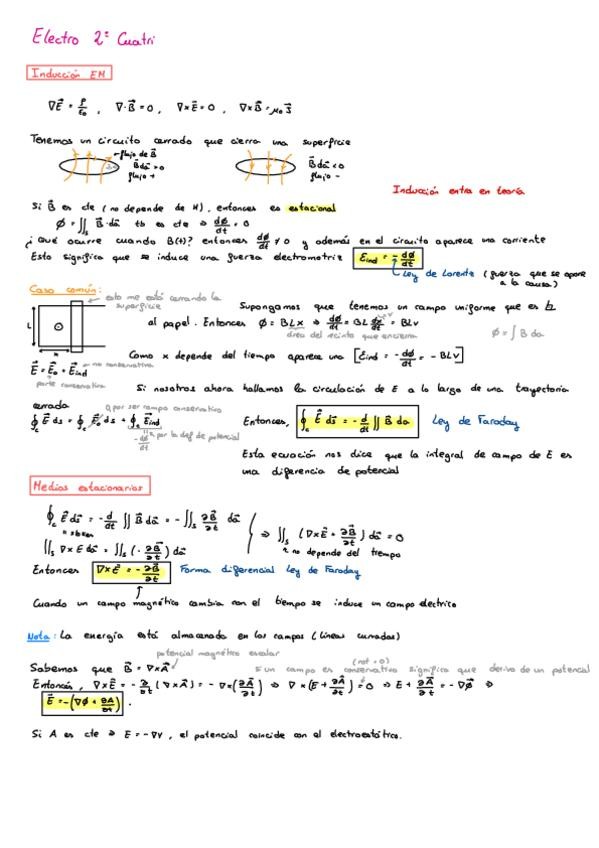 Electro 2º Cuatri
Inducción EM
∇E⃗ = ρ/ε₀ , ∇·B⃗ = 0 , ∇×E⃗ = 0 , ∇×B⃗ = μ₀ J⃗
Tenemos un circuito cerrado que cierra una superficie
flujo de B⃗
B⃗ da⃗ > 0
flujo +
B⃗ da⃗ < 0
flujo -
Inducción entra en teoría
Si B⃗ es cte (no depende de t), entonces es estacional
ϕ = ∬ₛ B⃗·da⃗ tb es cte ⇒ dϕ/dt = 0
¿Qué ocurre cuando B(t)? entonces dϕ/dt ≠ 0 y además en el circuito aparece una corriente
Esto significa que se induce una fuerza electromotriz Ɛind = - dϕ/dt
Ley de Lorentz (fuerza que se opone a la causa)
Caso común:
esto me está cerrando la superficie
L
x
Supongamos que tenemos un campo uniforme que es ⊥
al papel. Entonces ϕ = BLx ⇒ dϕ/dt = BL dx/dt = BLv
área del recinto que encierra
ϕ = ∫ B da
Como x depende del tiempo aparece una [Ɛind = - dϕ/dt = - BLv]
E⃗ = E⃗₀ + E⃗ind
no conservativa
parte conservativa
Si nosotros ahora hallamos la circulación de E a lo largo de una trayectoria
cerrada
0, por ser campo conservativo
∮c E⃗ ds = ∮c E⃗₀ ds + ∮c E⃗ind
-dϕ/dt por la def de potencial
Entonces, ∮c E⃗ ds⃗ = - d/dt ∬ B⃗ da Ley de Faraday
Esta ecuación nos dice que la integral de campo de E es
una diferencia de potencial
Medios estacionarios
∮c E⃗ ds⃗ = - d/dt ∬ B⃗ da⃗ = - ∬ₛ ∂B⃗/∂t da⃗
= stokes
∬ₛ ∇×E da⃗ = ∬ₛ (- ∂B⃗/∂t) da⃗
⇒ ∬ₛ (∇×E⃗ + ∂B⃗/∂t) da⃗ = 0
no depende del tiempo
Entonces ∇×E⃗ = - ∂B⃗/∂t Forma diferencial Ley de Faraday
Cuando un campo magnético cambia con el tiempo se induce un campo electrico
Nota: La energía está almacenada en los campos (líneas curvadas)
potencial magnético escalar
Sabemos que B⃗ = ∇×A⃗
si un campo es conservativo (rot = 0) significa que deriva de un potencial
Entonces, ∇×E⃗ = - ∂/∂t (∇×A⃗) = - ∇×(∂A⃗/∂t) ⇒ ∇×(E + ∂A⃗/∂t) = 0 ⇒ E + ∂A⃗/∂t = - ∇ϕ ⇒
E⃗ = - (∇ϕ + ∂A/∂t) .
Si A es cte ⇒ E = - ∇V , el potencial coincide con el electroestático.